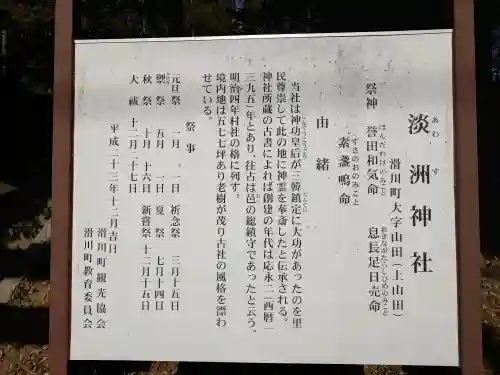 淡洲神社
あわ す
滑川町大字山田（上山田）
祭神 誉田和気命 息長足日売命
ほんだわけのみこと おきながたらしひめのみこと
素盞嗚命
すさのおのみこと
由緒
当社は神功皇后が三韓鎮定に大功があったのを里
民尊崇して此の地に神霊を奉斎したと伝承される。
神社所蔵の古書によれば創建の年代は応永二（西暦一
三九五）年とあり、往古は邑の総鎮守であったと云う。
明治四年村社の格に列す。
境内地は五七七坪あり老樹が茂り古社の風格を漂わ
せている。
祭事
元旦祭 一月 一日 祈念祭 三月十五日
禦祭 五月 一日 夏祭 七月十四日
秋祭 十月 十六日 新嘗祭 十二月十五日
大祓 十二月二十七日
平成二十三年十二月吉日
滑川町観光協会
滑川町教育委員会